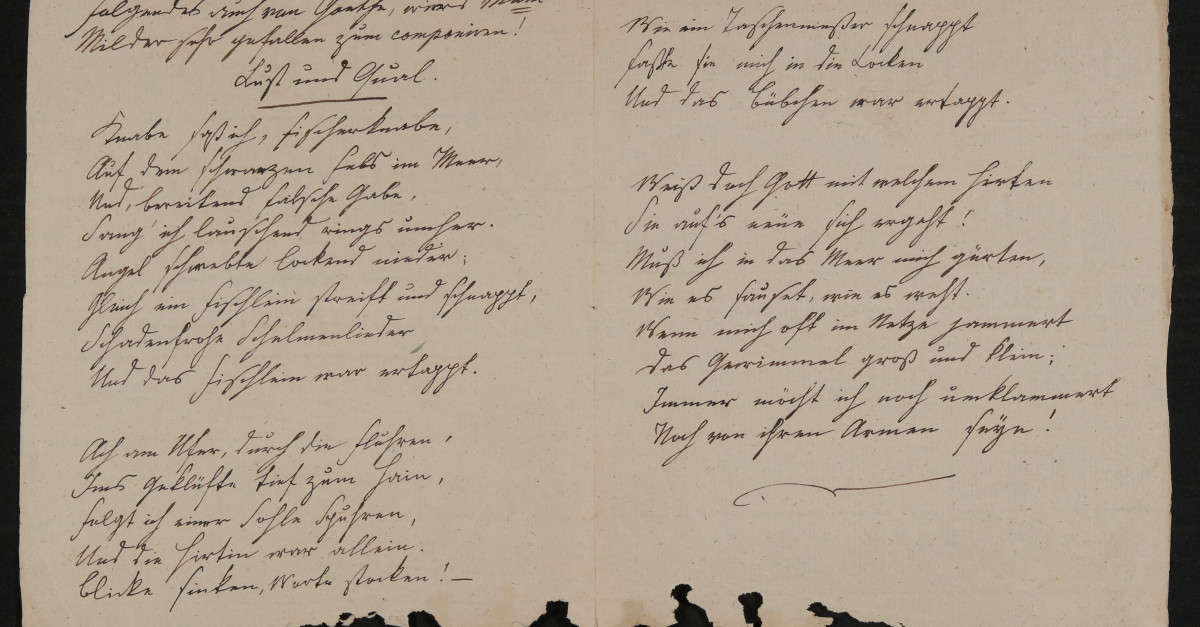 folgendes auch von Goethe, wird
Milder sehr gefallen zum componiren!
Lust und Qual.
Knabe saß ich, Fischerknabe,
Auf dem schwarzen Fels im Meer,
Und, bereitend falsche Gabe,
Sang' ich lauschend rings umher.
Angel schwebte lockend nieder;
Gleich ein Fischlein streift und schnappt,
Schadenfrohe Schelmenlieder
Und das Fischlein war ertappt.
Ach am Ufer, durch die Fluhren,
Ins Geklüfte tief zum Hain,
Folgt ich einer Sohle Spuhren,
Und die Hirtin war allein.
Blicke sinken, Worte stocken! —
Wie ein Taschenmeßer schnappt
Faßte sie mich in die Locken
Und das Bübchen war ertappt.
Weiß doch Gott mit welchem Hirten
Sie auf's neue sich ergeht!
Muß ich in das Meer mich gürten,
Wie es sauset, wie es weht.
Wenn mich oft im Netze jammert
Das Gewimmel groß und klein;
Immer möcht ich noch umklammert
Noch von ihren Armen seyn!